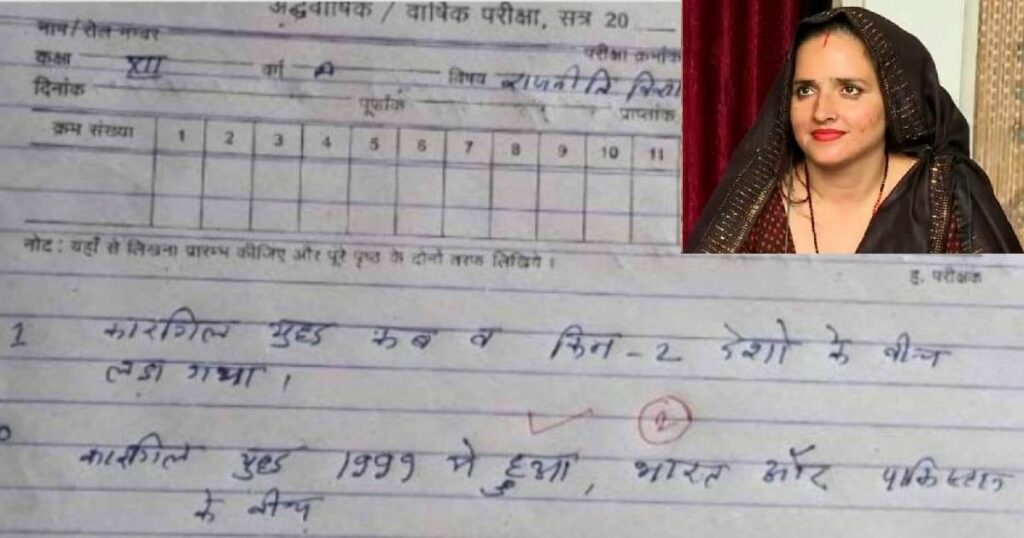 अर्द्धवार्षिक / वार्षिक परीक्षा, सत्र 20
नाम/रोल नम्बर
परीक्षा क्रमांक
कक्षा XII वर्ग A विषय राजनीति विज्ञा
दिनांक पूर्णांक प्राप्तांक
क्रम संख्या 1 2 3 4 5 6 7 8 9 10 11
नोट : यहाँ से लिखना प्रारम्भ कीजिए और पूरे पृष्ठ के दोनों तरफ लिखिये ।
ह. परीक्षक
1 कारगिल युद्ध कब व किन-2 देशो के बीच
लडा गया ।
2
कारगिल युद्ध 1999 मे हुआ, भारत और पाकिस्तान
के बीच